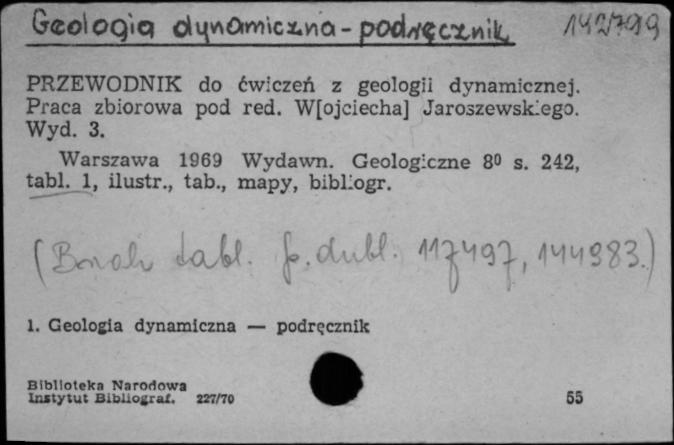 Geologia dynamiczna - podręcznik 142799
PRZEWODNIK do ćwiczeń z geologii dynamicznej.
Praca zbiorowa pod red. W[ojciecha] Jaroszewskiego.
Wyd. 3.
Warszawa 1969 Wydawn. Geologiczne 8⁰ s. 242,
tabl. 1, ilustr., tab., mapy, bibliogr.
(Brak tabl. p. dubl. 117497, 144983.)
1. Geologia dynamiczna — podręcznik
Biblioteka Narodowa
Instytut Bibliograf. 227/70 55